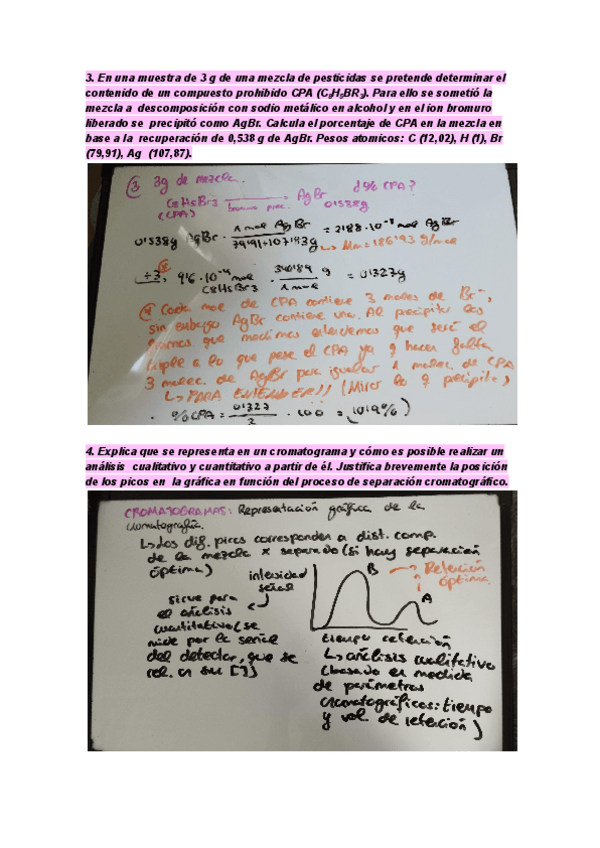 3. En una muestra de 3 g de una mezcla de pesticidas se pretende determinar el
contenido de un compuesto prohibido CPA (C₈H₅BR₃). Para ello se sometió la
mezcla a descomposición con sodio metálico en alcohol y en el íon bromuro
liberado se precipitó como AgBr. Calcula el porcentaje de CPA en la mezcla en
base a la recuperación de 0,538 g de AgBr. Pesos atomicos: C (12,02), H (1), Br
(79,91), Ag (107,87).
③ 3g de mezcla.
C8H5Br3 → AgBr ¿% CPA?
(CPA) bromuro prec. 0'538g
0'538g AgBr · 1 mol AgBr / 79'91+107'83g = 2'88·10⁻³ mol AgBr
↳ Mm = 186'93 g/mol
÷3, 9'6·10⁻⁴ mol C8H5Br3 · 340'89 g / 1 mol = 0'327g
Cada mol de CPA contiene 3 moles de Br⁻,
sin embargo AgBr contiene uno. Al precipitar los
gramos que medimos entendemos que será el
triple a lo que pese el CPA ya q hacen falta
3 molec. de AgBr para igualar 1 molec. de CPA
↳ PARA ENTENDER!! (Mirar lo q precipita)
· % CPA = 0'327 / 3 · 100 = (10'9%)
4. Explica que se representa en un cromatograma y cómo es posible realizar un
análisis cualitativo y cuantitativo a partir de él. Justifica brevemente la posición
de los picos en la gráfica en función del proceso de separación cromatográfico.
CROMATOGRAMAS: Representación gráfica de la
cromatografía.
↳ Los dif. picos corresponden a dist. comp.
de la mezcla x separado (si hay separación
óptima)
intensidad
señal
sirve para
el análisis
cuantitativo (se
mide por la señal
del detector, que se
rel. cn su [ ])
B
A
→ Retención
óptima.
tiempo retención
↳ análisis cualitativo
(basado en medida
de parámetros
cromatográficos: tiempo
y vol de retención)